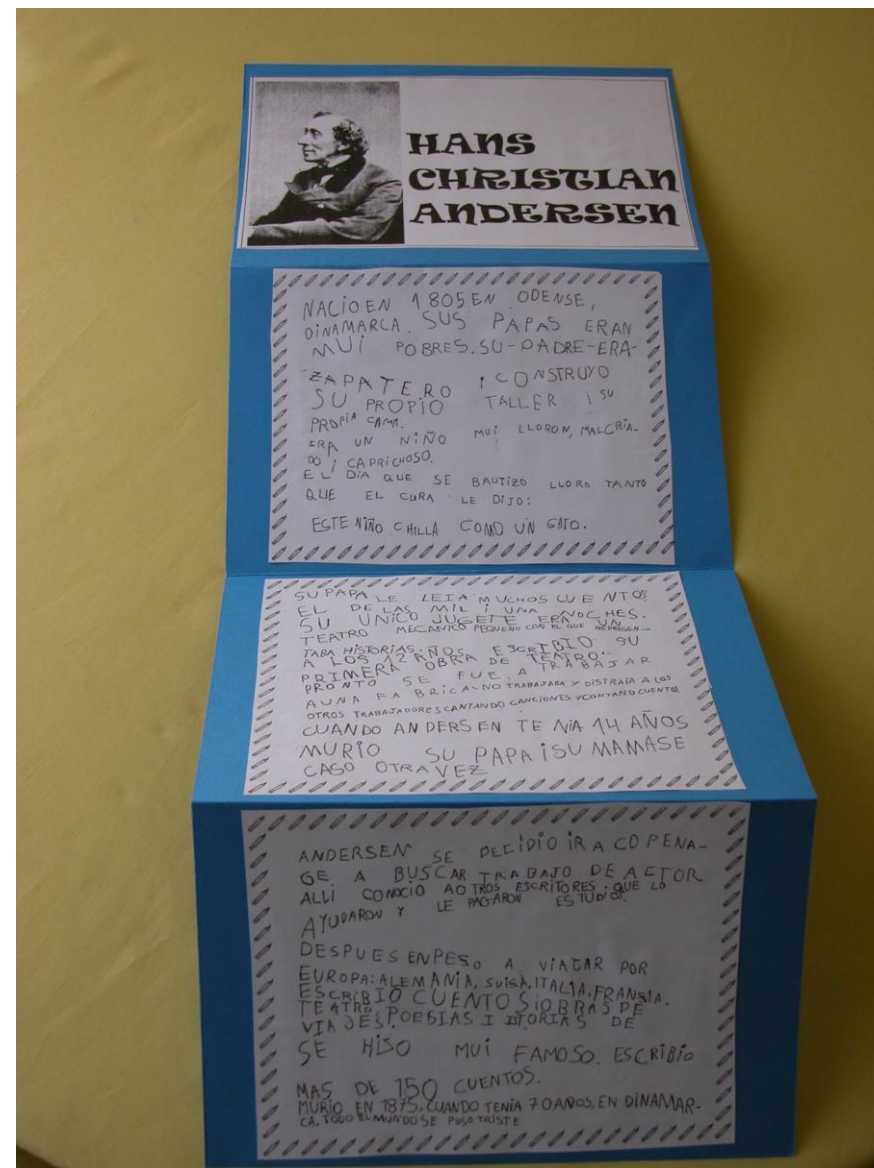 HANS
CHRISTIAN
ANDERSEN
NACIO EN 1805 EN ODENSE,
DINAMARCA. SUS PAPAS ERAN
MUI POBRES. SU-PADRE-ERA-
ZAPATERO I CONSTRUYO
SU PROPIO TALLER I SU
PROPIA CAMA.
ERA UN NIÑO MUI LLORON, MALCRIA-
DO I CAPRICHOSO.
EL DIA QUE SE BAUTIZO LLORO TANTO
QUE EL CURA LE DIJO:
ESTE NIÑO CHILLA COMO UN GATO.
SU PAPA LE LEIA MUCHOS CUENTOS
EL DE LAS MIL I UNA NOCHES.
SU UNICO JUGETE ERA UN
TEATRO MECANICO PEQUEÑO CON EL QUE REPRESEN-
TABA HISTORIAS.
A LOS 12 AÑOS ESCRIBIO SU
PRIMERA OBRA DE TEATRO.
PRONTO SE FUE A TRABAJAR
A UNA FABRICA. NO TRABAJARA Y DISTRAIA A LOS
OTROS TRABAJADORES CANTANDO CANCIONES Y CONTANDO CUENTOS
CUANDO ANDERSEN TENIA 14 AÑOS
MURIO SU PAPA I SU MAMA SE
CASO OTRA VEZ
ANDERSEN SE DECIDIO IR A COPENA-
GE A BUSCAR TRABAJO DE ACTOR
ALLI CONOCIO A OTROS ESCRITORES QUE LO
AYUDARON Y LE PAGARON ESTUDIOS.
DESPUES ENPESO A VIAGAR POR
EUROPA: ALEMANIA, SUISA, ITALIA, FRANSIA.
ESCRIBIO CUENTOS I OBRAS DE
TEATRO, POESIAS I ISTORIAS DE
VIAJES.
SE HISO MUI FAMOSO. ESCRIBIO
MAS DE 150 CUENTOS.
MURIO EN 1875, CUANDO TENIA 70 AÑOS, EN DINAMAR-
CA. TODO EL MUNDO SE PUSO TRISTE